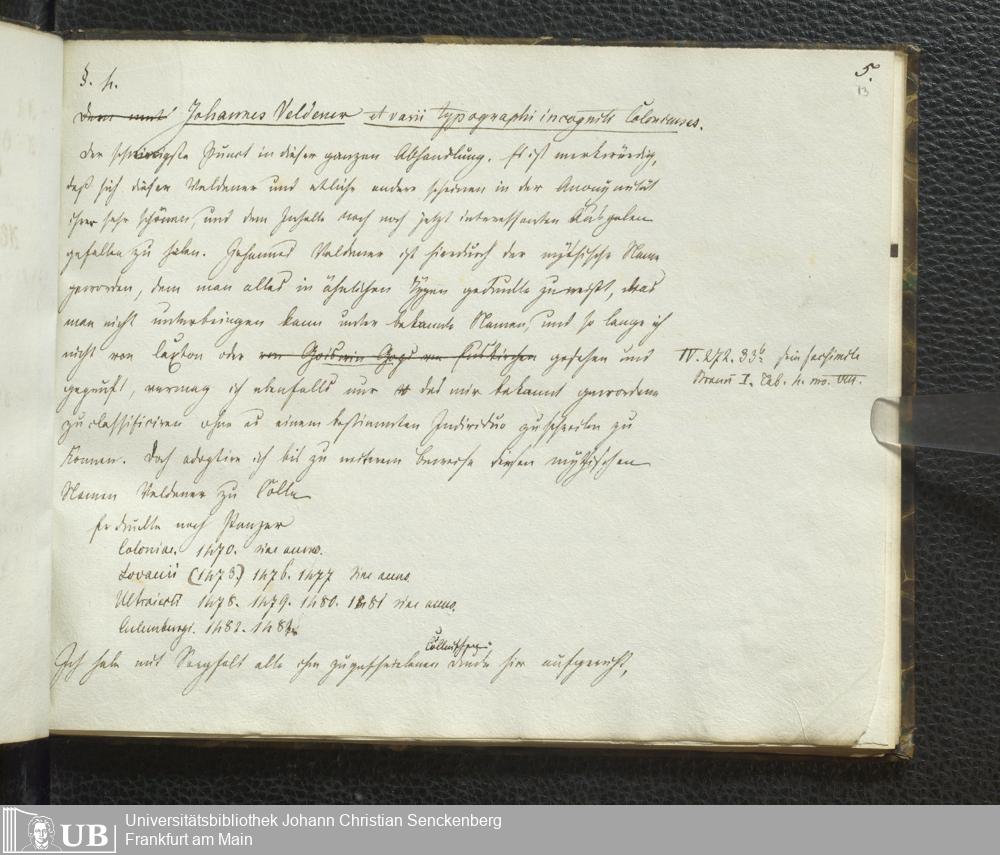 5.
13
§. 4.
Johannes Veldener et varii typographi incogniti Colonienses.
Der schwierigste Punct in dieser ganzen Abhandlung. Es ist merkwürdig,
daß sich dieser Veldener und etliche andere scheinen in der Anonymität
ihrer sehr schönen, und dem Inhalte nach noch jetzt interessanten Ausgaben
gefallen zu haben. Johannes Veldener ist hierdurch der mythische Name
geworden, dem man alles in ähnlichen Typen gedruckte zuweist, was
man nicht unterbringen kann unter bekannte Namen, und so lange ich
nicht von Caxton oder von Goiswin Gops von Euskirchen gesehen und
geprüft, vermag ich ebenfalls nur das mir bekannt gewordene
zu classificiren ohne es einem bestimmten Individuo zuschreiben zu
können. Doch adoptire ich bis zu weiterem Beweise diesen mythischen
Namen Veldener zu Cölln
IV. 272. 33b. sein facsimile
Braun I. Tab. 4. no. VIII.
Er druckte nach Panzer
Coloniae. 1470. sine anno.
Lovanii (1473.) 1476. 1477 sine anno.
Ultraiecti 1478. 1479. 1480. 1481 sine anno.
Culemburgi. 1482. 1484
Ich habe mit Sorgfalt alle ihm zugeschriebenen Cöllnischen Drucke hier aufgereiht,
UB
Universitätsbibliothek Johann Christian Senckenberg
Frankfurt am Main